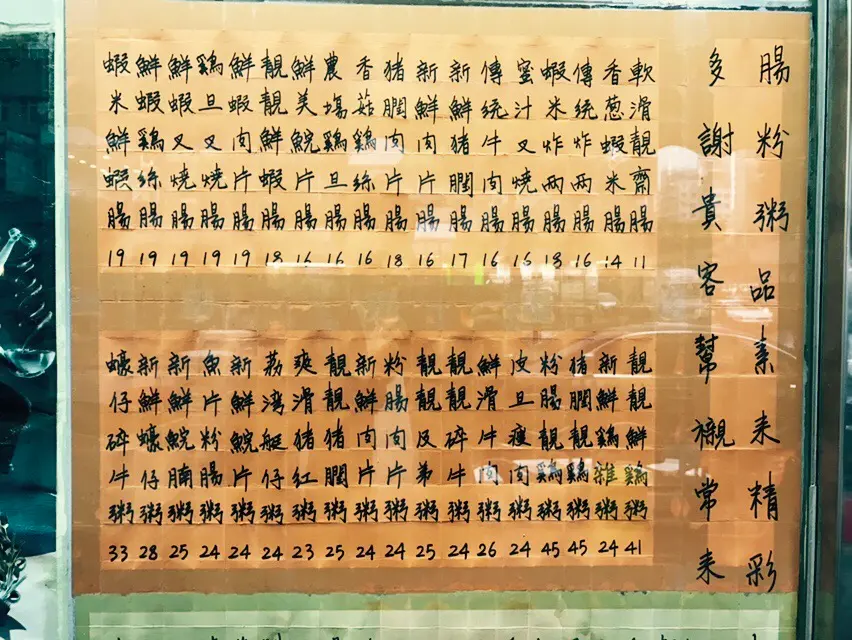 腸粉粥品素来精彩
多謝貴客幫襯常来
軟滑靚齋腸 11
香葱蝦米腸 14
傳统炸两腸 16
蝦米炸两腸 18
蜜汁叉燒腸 16
傳统牛肉腸 16
新鮮猪膶腸 17
新鮮肉片腸 16
猪膶肉片腸 18
香菇鷄絲腸 16
農場鷄旦腸 16
鮮美鯇片腸 16
靚靚鮮蝦腸 18
鮮蝦肉片腸 19
鷄旦叉燒腸 19
鮮蝦叉燒腸 19
鮮蝦鷄絲腸 19
蝦米鮮蝦腸 19
靚靚鮮鷄粥 41
新鮮鷄雜粥 24
猪膶靚鷄粥 45
粉腸靚鷄粥 45
皮旦瘦肉粥 24
鮮滑牛肉粥 26
靚靚碎牛粥 24
靚靚及弟粥 25
粉腸肉片粥 24
新鮮肉片粥 24
靚靚猪膶粥 25
爽滑猪红粥 23
荔湾艇仔粥 24
新鮮鯇片粥 24
魚片粉腸粥 24
新鮮鯇腩粥 25
新鮮蠔仔粥 28
蠔仔碎牛粥 33